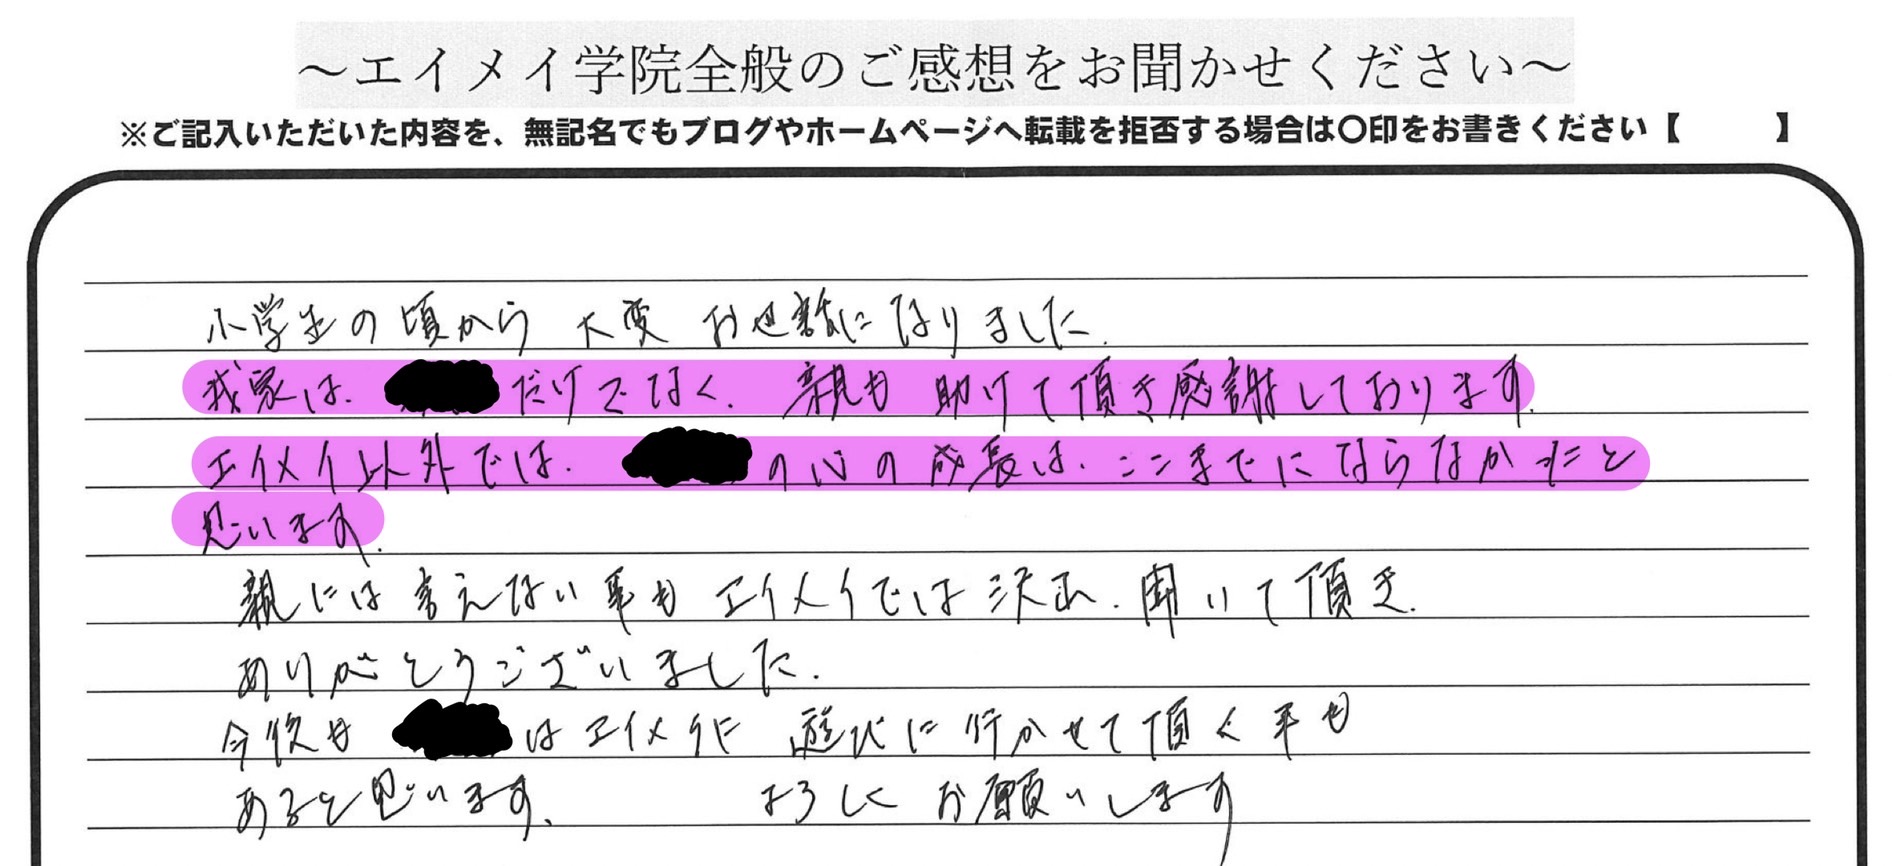 ～エイメイ学院全般のご感想をお聞かせください～
※ご記入いただいた内容を、無記名でもブログやホームページへ転載を拒否する場合は〇印をお書きください【　　】
小学生の頃から 大変 お世話になりました.
我家は. だけでなく. 親も 助けて頂き感謝しております.
エイメイ以外では. の心の成長は. ここまでにならなかったと
思います.
親には言えない事も エイメイでは 沢山. 聞いて頂き.
ありがとうございました.
今後も はエイメイに 遊びに行かせて頂く事も
あると思います、 よろしく お願いします